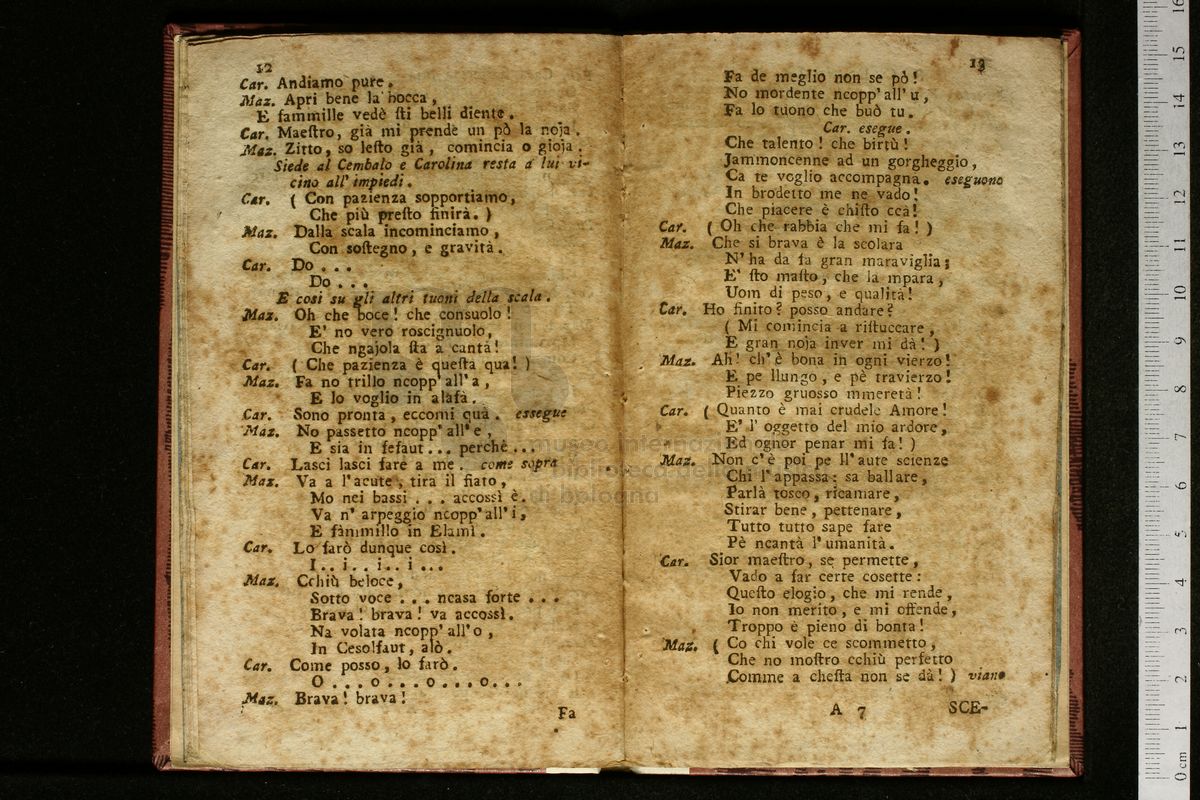 12
Car. Andiamo pure.
Maz. Apri bene la bocca,
E fammille vedè ſti belli diente.
Car. Maeſtro, già mi prende un pò la noja.
Maz. Zitto, so leſto già, comincia o gioja.
Siede al Cembalo e Carolina resta a lui vi-
cino all' impiedi.
Car. ( Con pazienza sopportiamo,
Che più preſto finirà. )
Maz. Dalla scala incominciamo,
Con soſtegno, e gravità.
Car. Do...
Do...
E così su gli altri tuoni della scala.
Maz. Oh che boce! che consuolo!
E' no vero roscignuolo,
Che ngajola ſta a cantà!
Car. ( Che pazienza è queſta quà! )
Maz. Fa no trillo ncopp' all' a,
E lo voglio in alafà.
Car. Sono pronta, eccomi quà. essegue
Maz. No passetto ncopp' all' e,
E sia in fefaut... perchè...
Car. Lasci lasci fare a me. come sopra
Maz. Va a l'acute, tira il fiato,
Mo nei bassi... accossì è.
Va n' arpeggio ncopp' all' i,
E fammillo in Elamì.
Car. Lo farò dunque così.
I.. i.. i.. i...
Maz. Cchiù beloce,
Sotto voce... ncasa forte...
Brava! brava! va accossì.
Na volata ncopp' all' o,
In Cesolfaut, alò.
Car. Come posso, lo farò.
O... o... o... o...
Maz. Brava! brava!
Fa
13
Fa de meglio non se pò!
No mordente ncopp' all' u,
Fa lo tuono che buò tu.
Car. esegue.
Che talento! che birtù!
Jammoncenne ad un gorgheggio,
Ca te voglio accompagna. eseguono
In brodetto me ne vado!
Che piacere è chiſto ccà!
Car. ( Oh che rabbia che mi fa! )
Maz. Che si brava è la scolara
N' ha da fa gran maraviglia;
E' ſto maſto, che la mpara,
Uom di peso, e qualità!
Car. Ho finito? posso andare?
( Mi comincia a riſtuccare,
E gran noja inver mi dà! )
Maz. Ah! ch' è bona in ogni vierzo!
E pe llungo, e pè travierzo!
Piezzo gruosso mmeretà!
Car. ( Quanto è mai crudele Amore!
E' l' oggetto del mio ardore,
Ed ognor penar mi fa! )
Maz. Non c' è poi pe ll' aute scienze
Chi l' appassa: sa ballare,
Parlà tosco, ricamare,
Stirar bene, pettenare,
Tutto tutto sape fare
Pè ncantà l' umanità.
Car. Sior maeſtro, se permette,
Vado a far certe cosette:
Queſto elogio, che mi rende,
Io non merito, e mi offende,
Troppo è pieno di bontà!
Maz. ( Co chi vole ce scommetto,
Che no moſtro cchiù perfetto
Comme a cheſta non se dà! ) viano
A 7
SCE-
museo internazi
biblioteca della
di bologna
0 cm 1 2 3 4 5 6 7 8 9 10 11 12 13 14 15 16